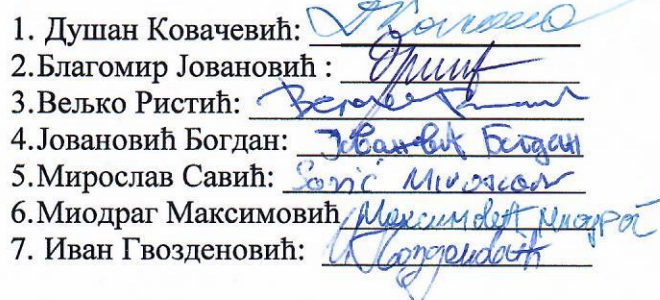 1. Душан Ковачевић:
2.Благомир Јовановић :
3.Вељко Ристић:
4.Јовановић Богдан: Јовановић Богдан
5.Мирослав Савић: Savić Miroslav
6.Миодраг Максимовић Максимовић Миодраг
7. Иван Гвозденовић: